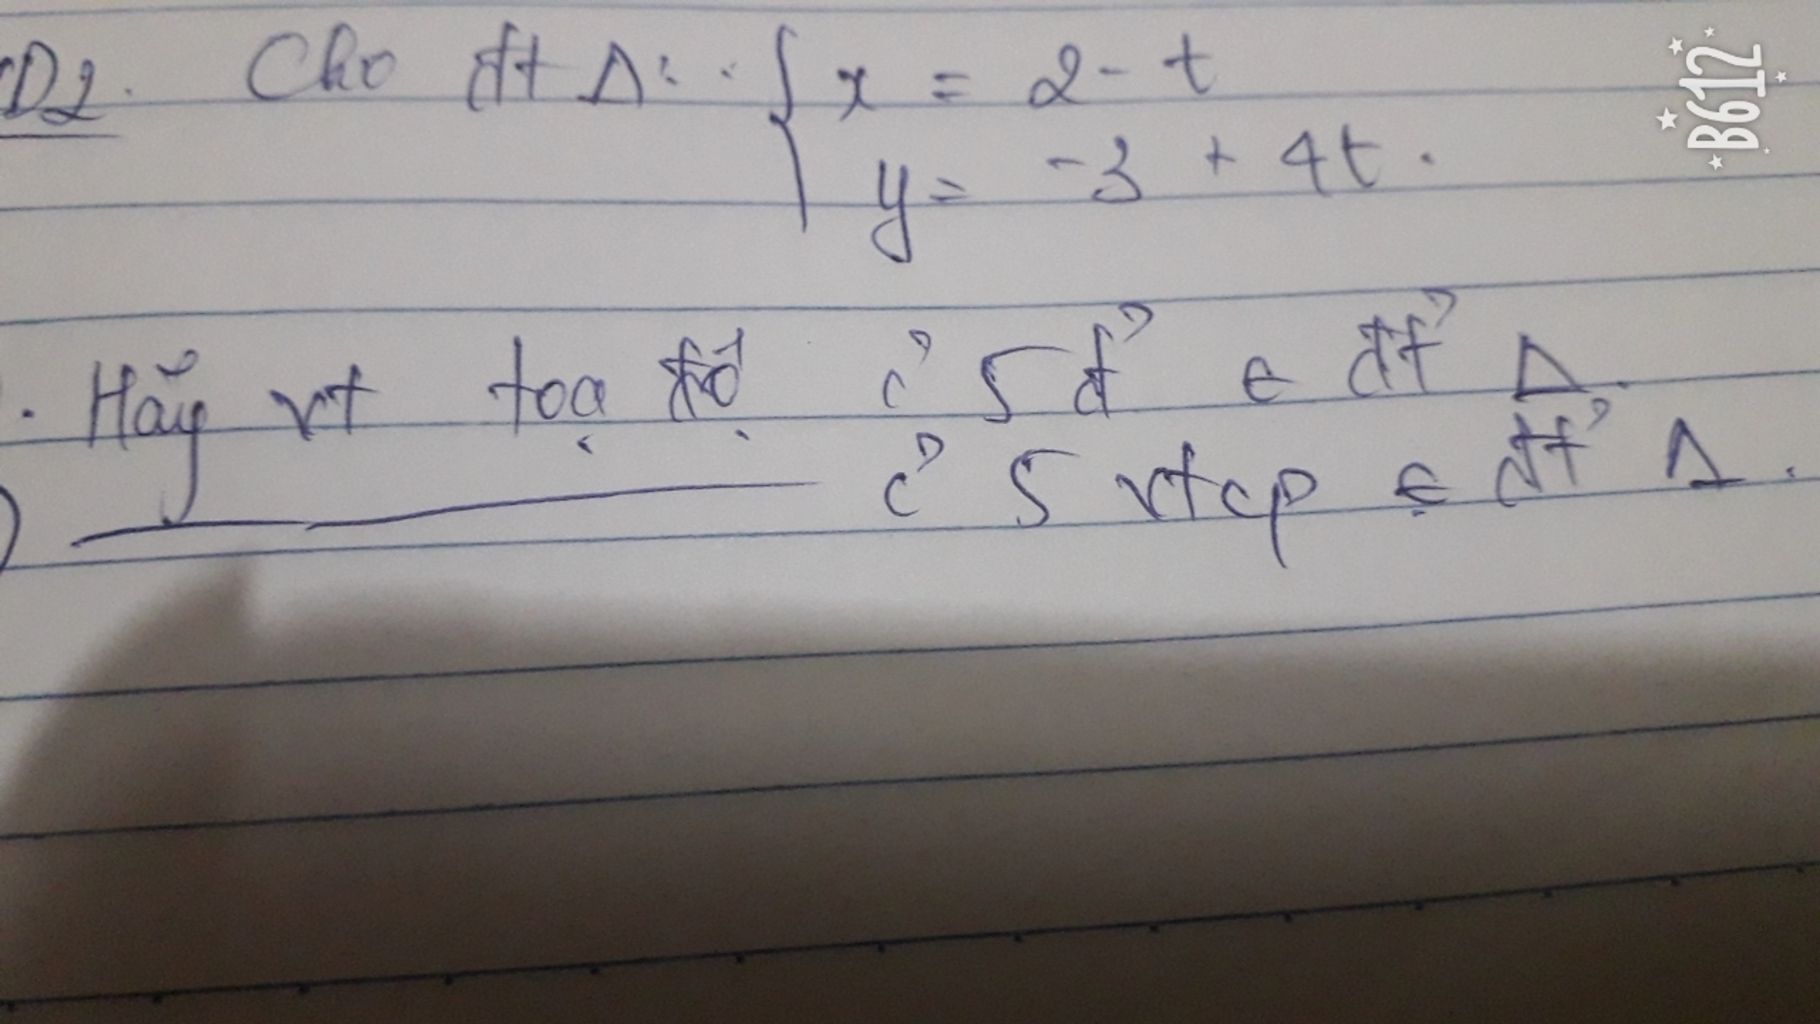 D2. Cho đt Δ: { x = 2 - t
y = -3 + 4t.
. Hãy vt toạ độ củ 5 đ' ∈ đt' Δ.
) ———— củ 5 vtcp ∈ đt' Δ.
B612